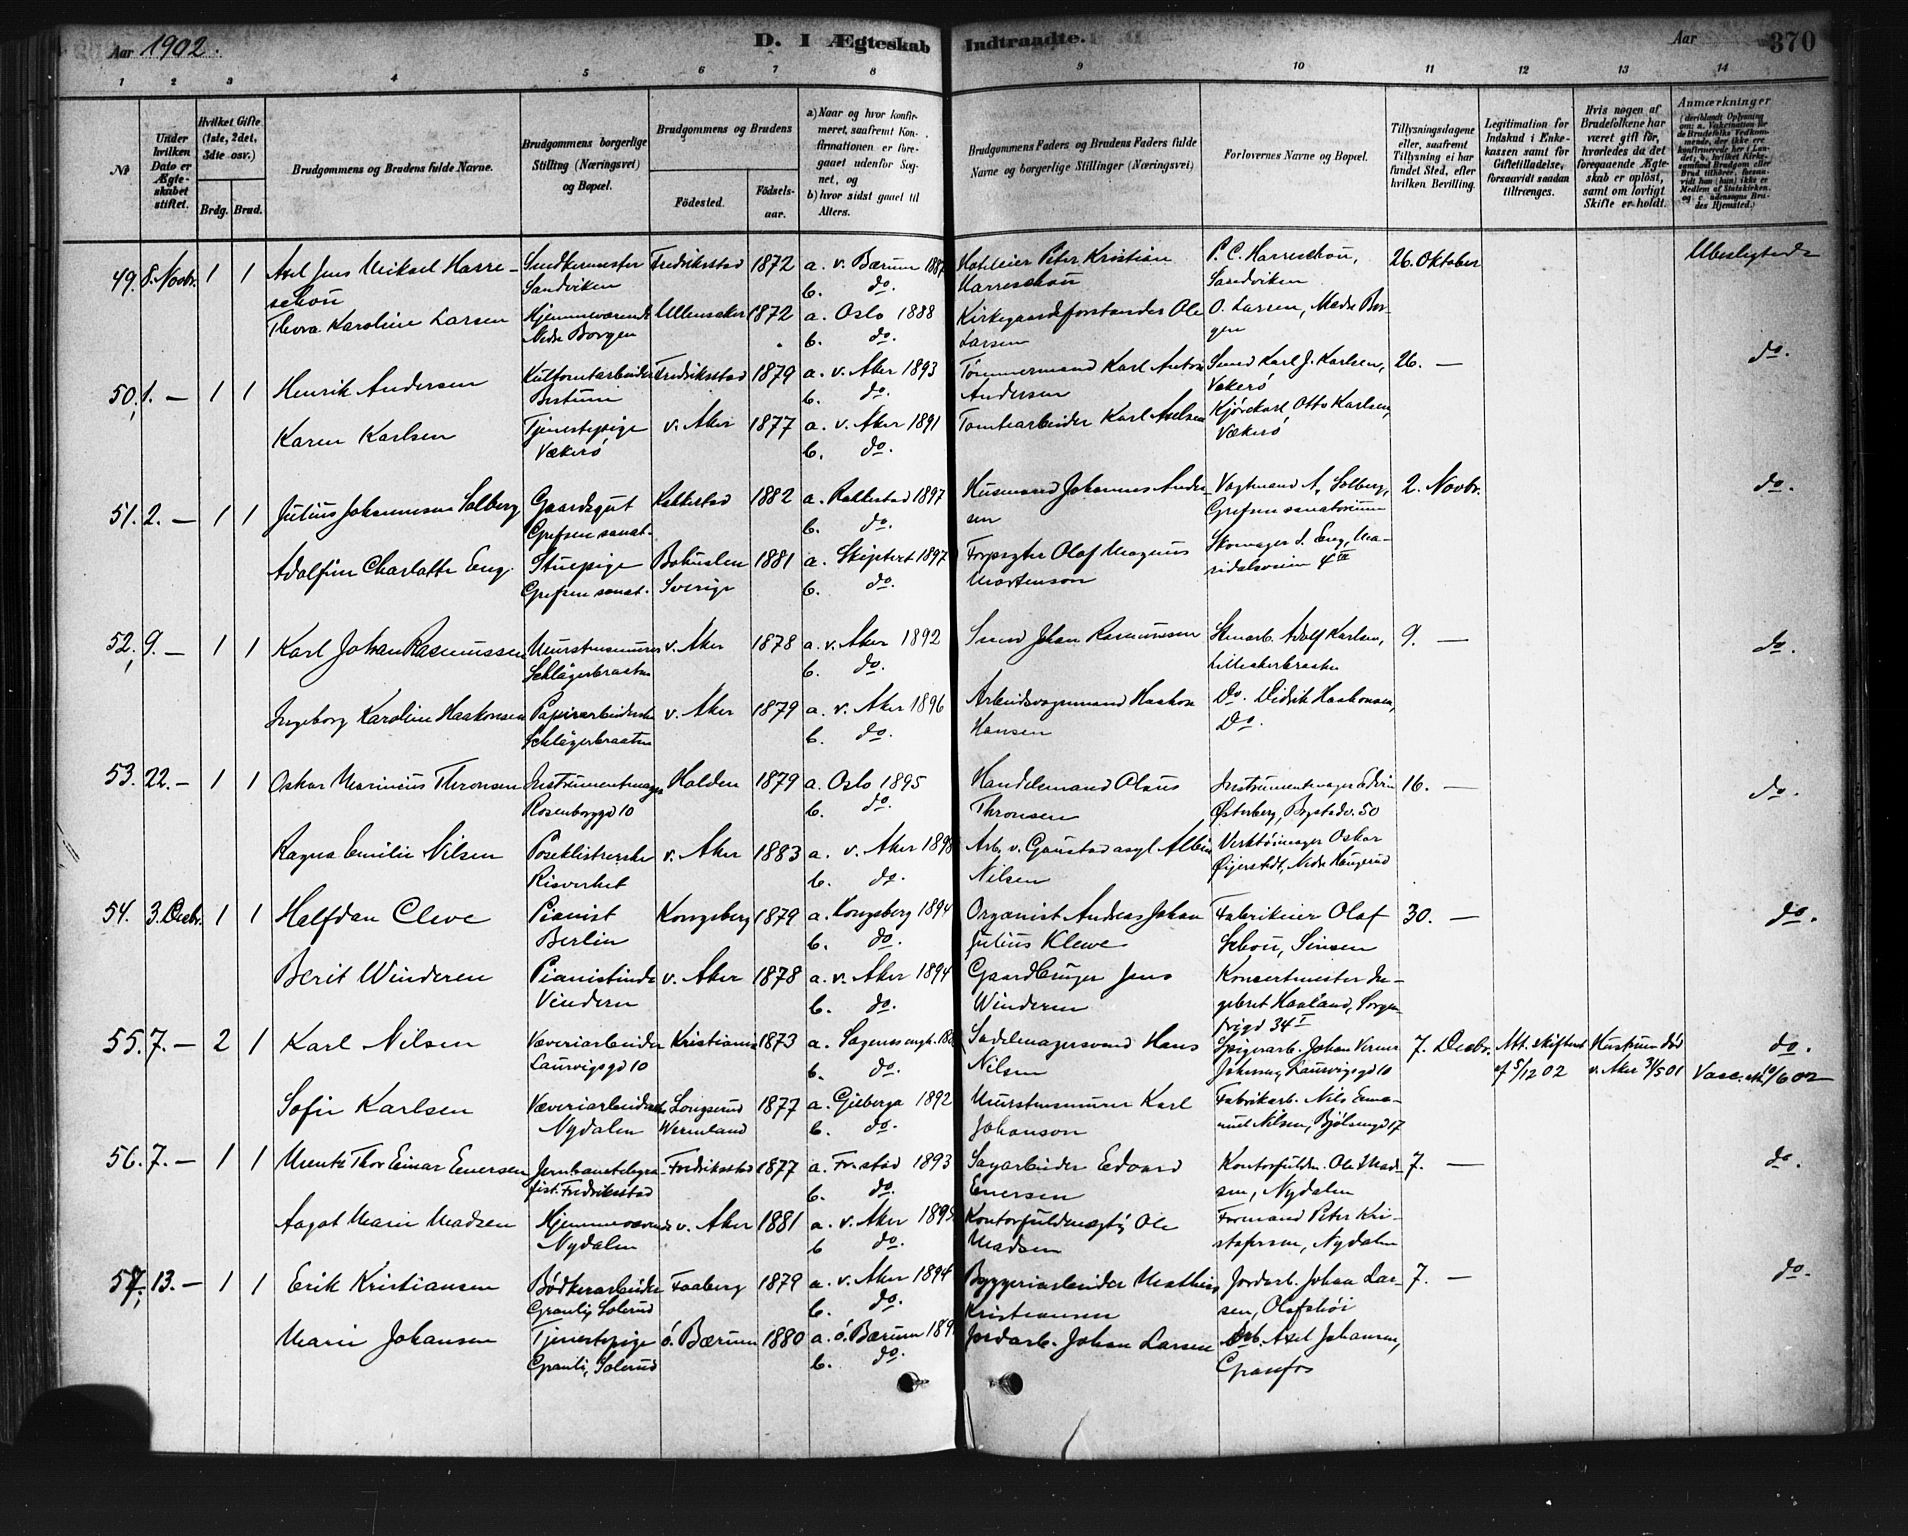 Aar 1902.
D. I Ægteskab Indtraadte.
Aar
370
1 2 3 4 5 6 7 8 9 10 11 12 13 14
№
Under hvilken Dato er Ægteskabet stiftet.
Hvilket Gifte (1ste, 2det, 3die osv.)
Brdg. Brud.
Brudgommens og Brudens fulde Navne.
Brudgommens borgerlige Stilling (Næringsvei) og Bopæl.
Brudgommens og Brudens
Fødested.
Fødselsaar.
a) Naar og hvor konfirmeret, saafremt Konfirmationen er foregaaet udenfor Sognet, og
b) hvor sidst gaaet til Alters.
Brudgommens Faders og Brudens Faders fulde Navne og borgerlige Stillinger (Næringsvei)
Forlovernes Navne og Bopæl.
Tillysningsdagene eller, saafremt Tillysning ei har fundet Sted, efter hvilken Bevilling.
Legitimation for Indskud i Enkekassen samt for Giftetilladelse, forsaavidt saadan tiltrænges.
Hvis nogen af Brudefolkene har været gift før, hvorledes da det foregaaende Ægteskab er opløst, samt om lovligt Skifte er holdt.
Anmærkninger
49. 8. Novbr. 1 1 Axel Jens Mikael Harreschou Sandviken Fredriksstad 1872 a. v. Bærum 1887 b. do. Hoteleier Peter Kristian Harreschou P. C. Harreschou, Sandviken 26. Oktober Ubeslægtede
Thora Karoline Larsen Hjemmeværende Nedre Borgen Ullensaker 1872 a. Oslo 1888 b. do. Kirkegaardsforstander Ole Larsen O. Larsen, Nedre Borgen
50. 1. — 1 1 Henrik Andersen Bestum Fredriksstad 1879 a. v. Aker 1893 b. do. Tømmermand Karl Anton Andersen Smed Karl J. Karlsen, Vækerø 26. — do.
Karen Karlsen Tjenestepige Vækerø v. Aker 1877 a. v. Aker 1891 b. do. Tomtearbeider Karl Axelsen Kjørekarl Otto Karlsen, Vækerø
51. 2. — 1 1 Julius Johannesen Solberg Gaardsgut Grefsen sanat. Rakkestad 1882 a. Rakkestad 1897 b. do. Husmand Johannes Andersen Vagtmand A. Solberg, Grefsen sanatorium 2. Novbr. do.
Adolfine Charlotte Eng. Stuepige Grefsen sanat. Bohuslen Sverige 1881 a. 1897 b. do. Forpagter Olaf Magnus Mortenson Skomager J. Eng, Maridalsveien 4 II
52. 9. — 1 1 Karl Johan Rasmussen Murstensmurer v. Aker 1878 a. v. Aker 1892 b. do. Smed Johan Rasmussen Stenarb. Adolf Karlsen, Lilleakerbraaten 9. — do.
Ingeborg Karoline Haakonsen Papirarbeiderske v. Aker 1879 a. v. Aker 1896 b. do. Arbeidsvognmand Haakon Hansen Do. Didrik Haakonsen, Do.
53. 22. — 1 1 Oskar Marinius Thronsen Instrumentmager Rosenborggd 10 Halden 1879 a. Oslo 1895 b. do. Handelsmand Olaus Thronsen Instrumentmager Edvin Østerberg, Bogstadv. 50 16. — do.
Ragna Emilie Nilsen Poseklistrerske Risverket v. Aker 1883 a. v. Aker 1898 b. do. Arb. v. Gaustad asyl Albin Nilsen Verktøimager Oskar Øijerstedt, Nedre Haugerud
54. 3. Decbr. 1 1 Halfdan Cleve Pianist Berlin Kongsberg 1879 a. Kongsberg 1894 b. do. Organist Andreas Johan Julius Klewe Fabrikeier Olaf Schou, Sinsen 30. — do.
Berit Winderen Pianistinde Vinderen v. Aker 1878 a. v. Aker 1894 b. do. Gaardbruger Jens Winderen Koncertmester Ingebret Haaland, Sorgenfrigd 34 I
55. 7. — 2 1 Karl Nilsen Væveriarbeider Laurvigsgd 10 Kristiania 1873 a. b. do. Sadelmagersvend Hans Nilsen Spigerarb. Johan Verner Johansen, Laurvigsgd 10 7. Decbr. Att. skifteret af 5/12 02 Hustruen død v. Aker 31/5 01 do. Vacc. att. 10/6 02
Sofie Karlsen Væveriarbeiderske Nydalen Longserud Wermland 1877 a. Gilberga 1892 b. do. Murstensmurer Karl Johanson Fabrikarb. Nils Emanuel Nilsen, Bjølsengd 17
56. 7. — 1 1 Mentz Thor Einar Enersen Jernbanetelegrafist. Fredriksstad Fredriksstad 1877 a. Fr.stad 1893 b. do. Sagarbeider Edvard Enersen Kontorfuldm. Ole Madsen, Nydalen 7. — do.
Aagot Marie Madsen Hjemmeværende Nydalen v. Aker 1881 a. v. Aker 1895 b do. Kontorfuldmægtig Ole Madsen Formand Peter Kristofersen, Nydalen
57. 13. — 1 1 Erik Kristiansen Bødkerarbeider Granli, Solerud Faaberg 1879 a. v. Aker 1894 b. do. Byggeriarbeider Mathias Kristiansen Jordarb. Johan Larsen, Olafshøi 7. — do.
Marie Johansen Tjenestepige Granli, Solerud ø. Bærum 1880 a. ø. Bærum b. do. Jordarb. Johan Larsen Arb. Axel Johansen, Granfos